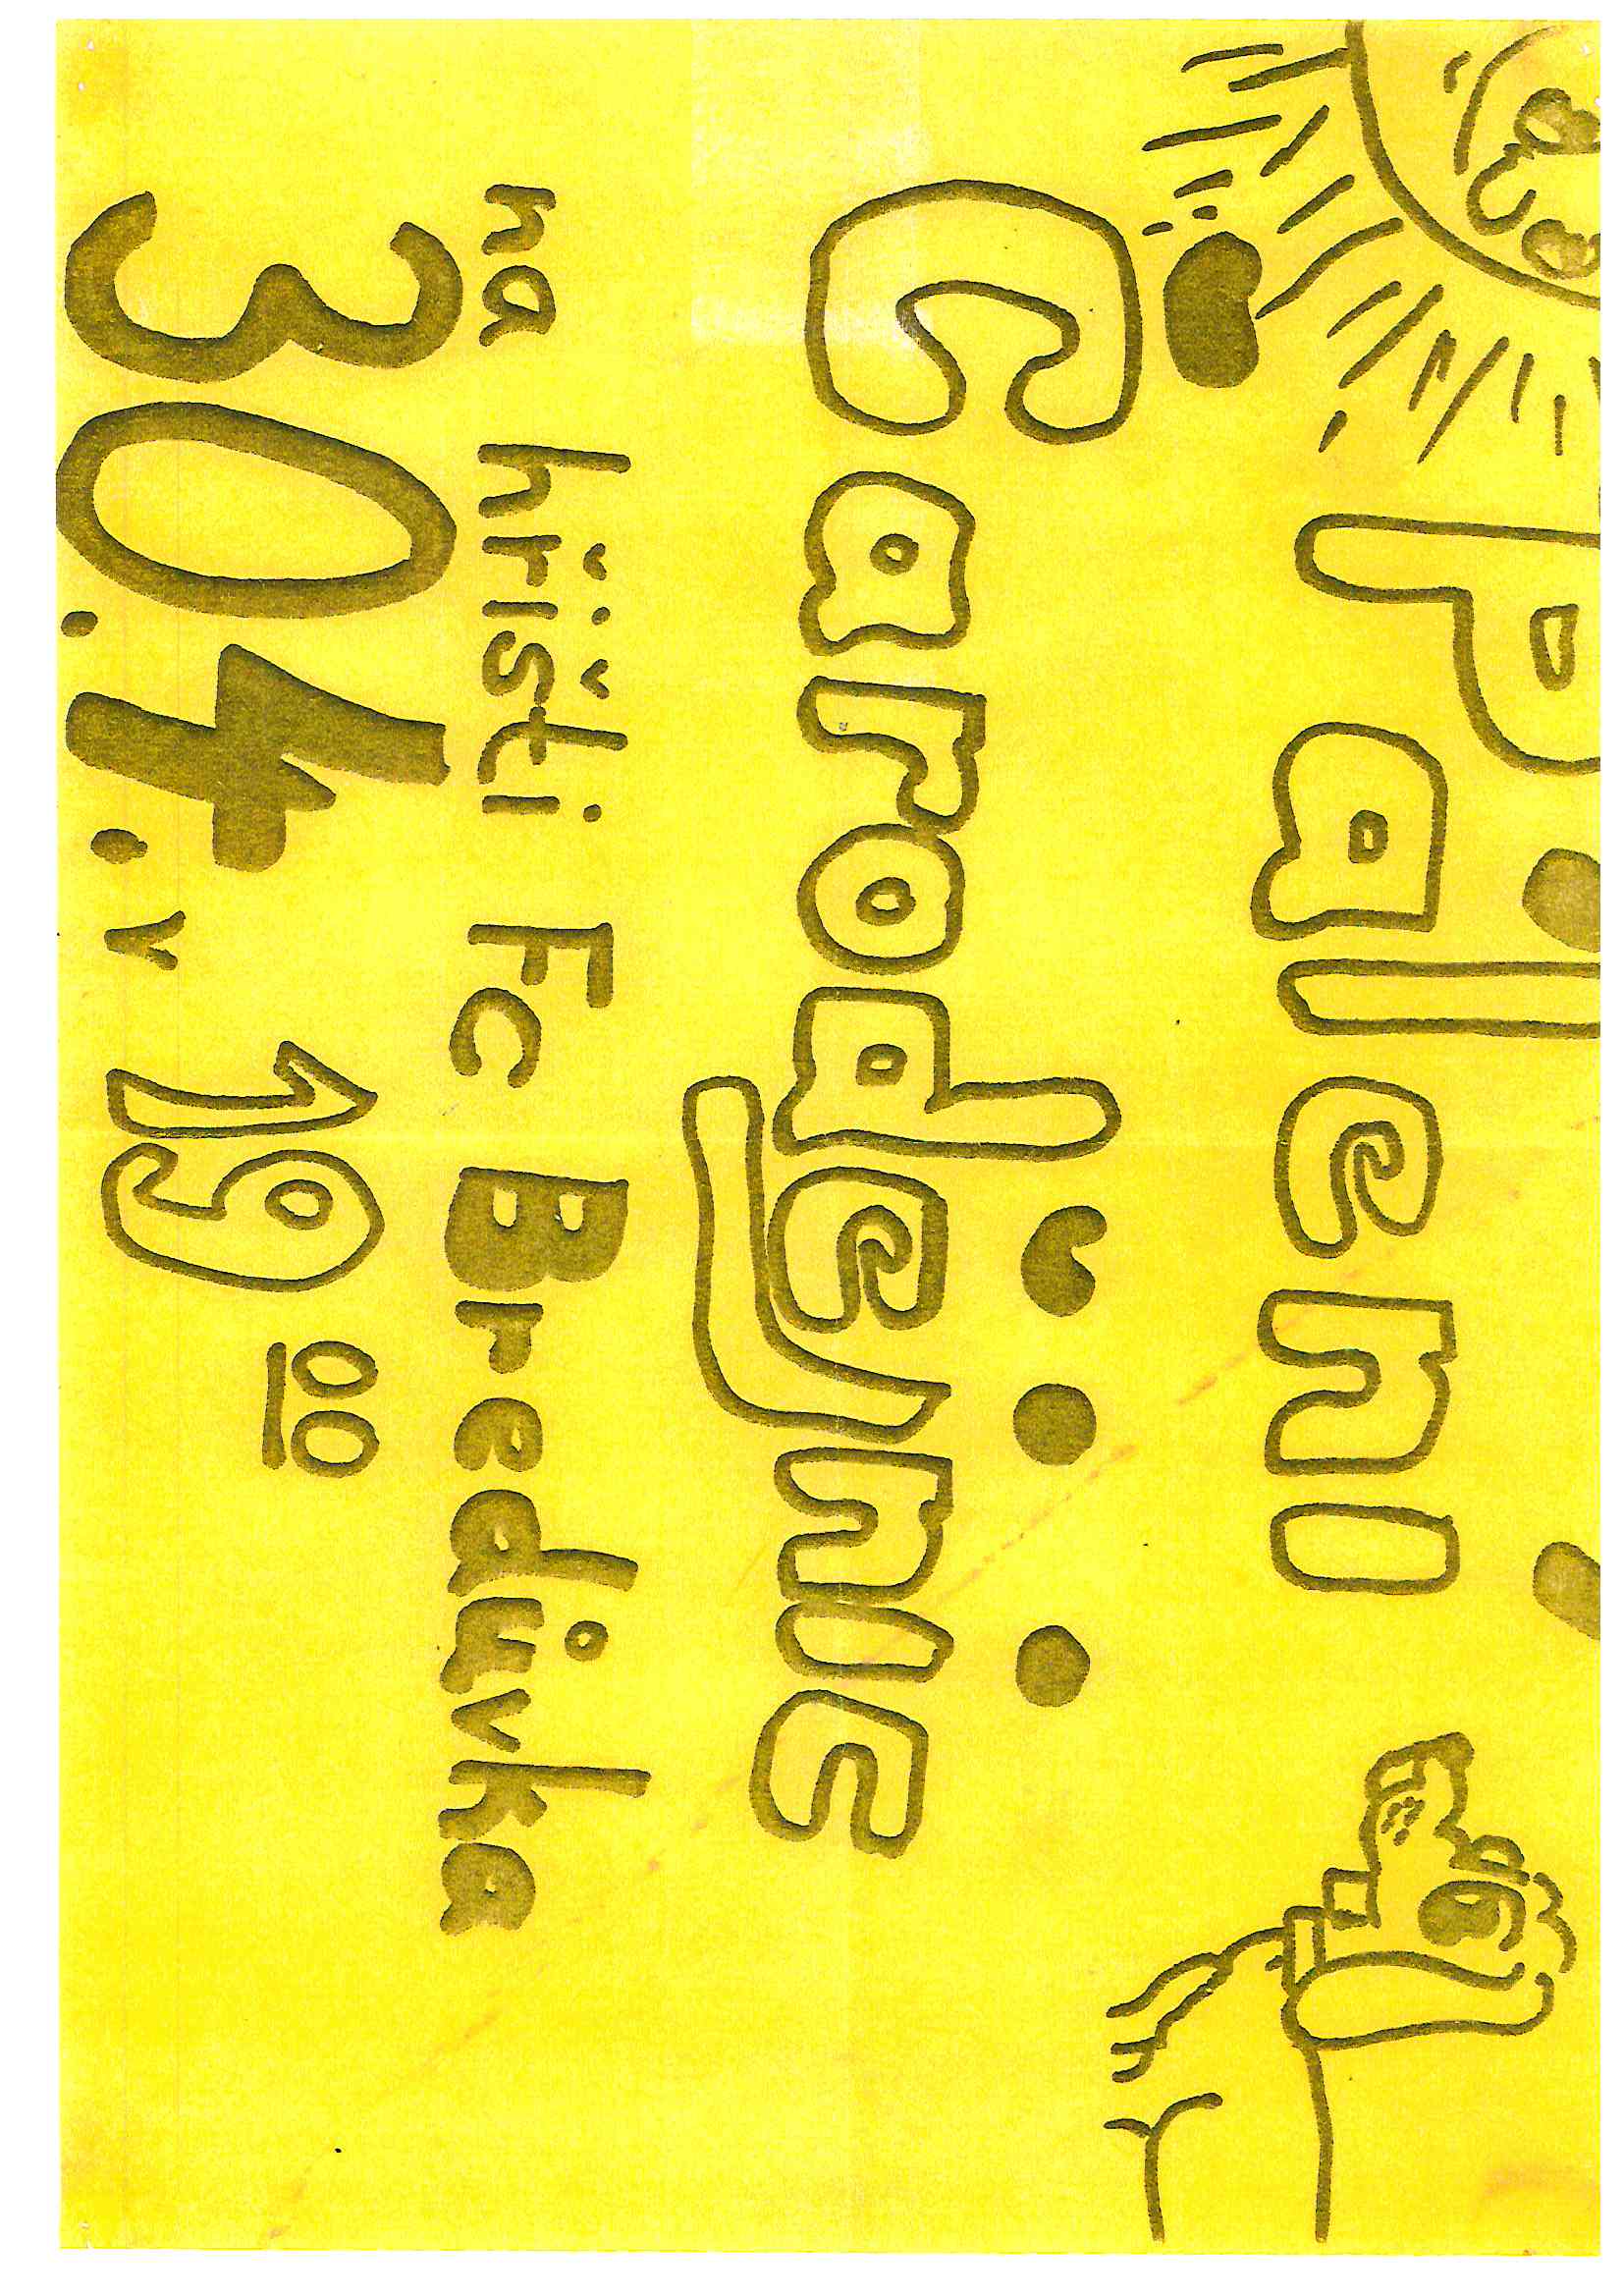 Pálení
Čarodějnic
na hřišti Fc Bredůvka
30.4. v 19 00